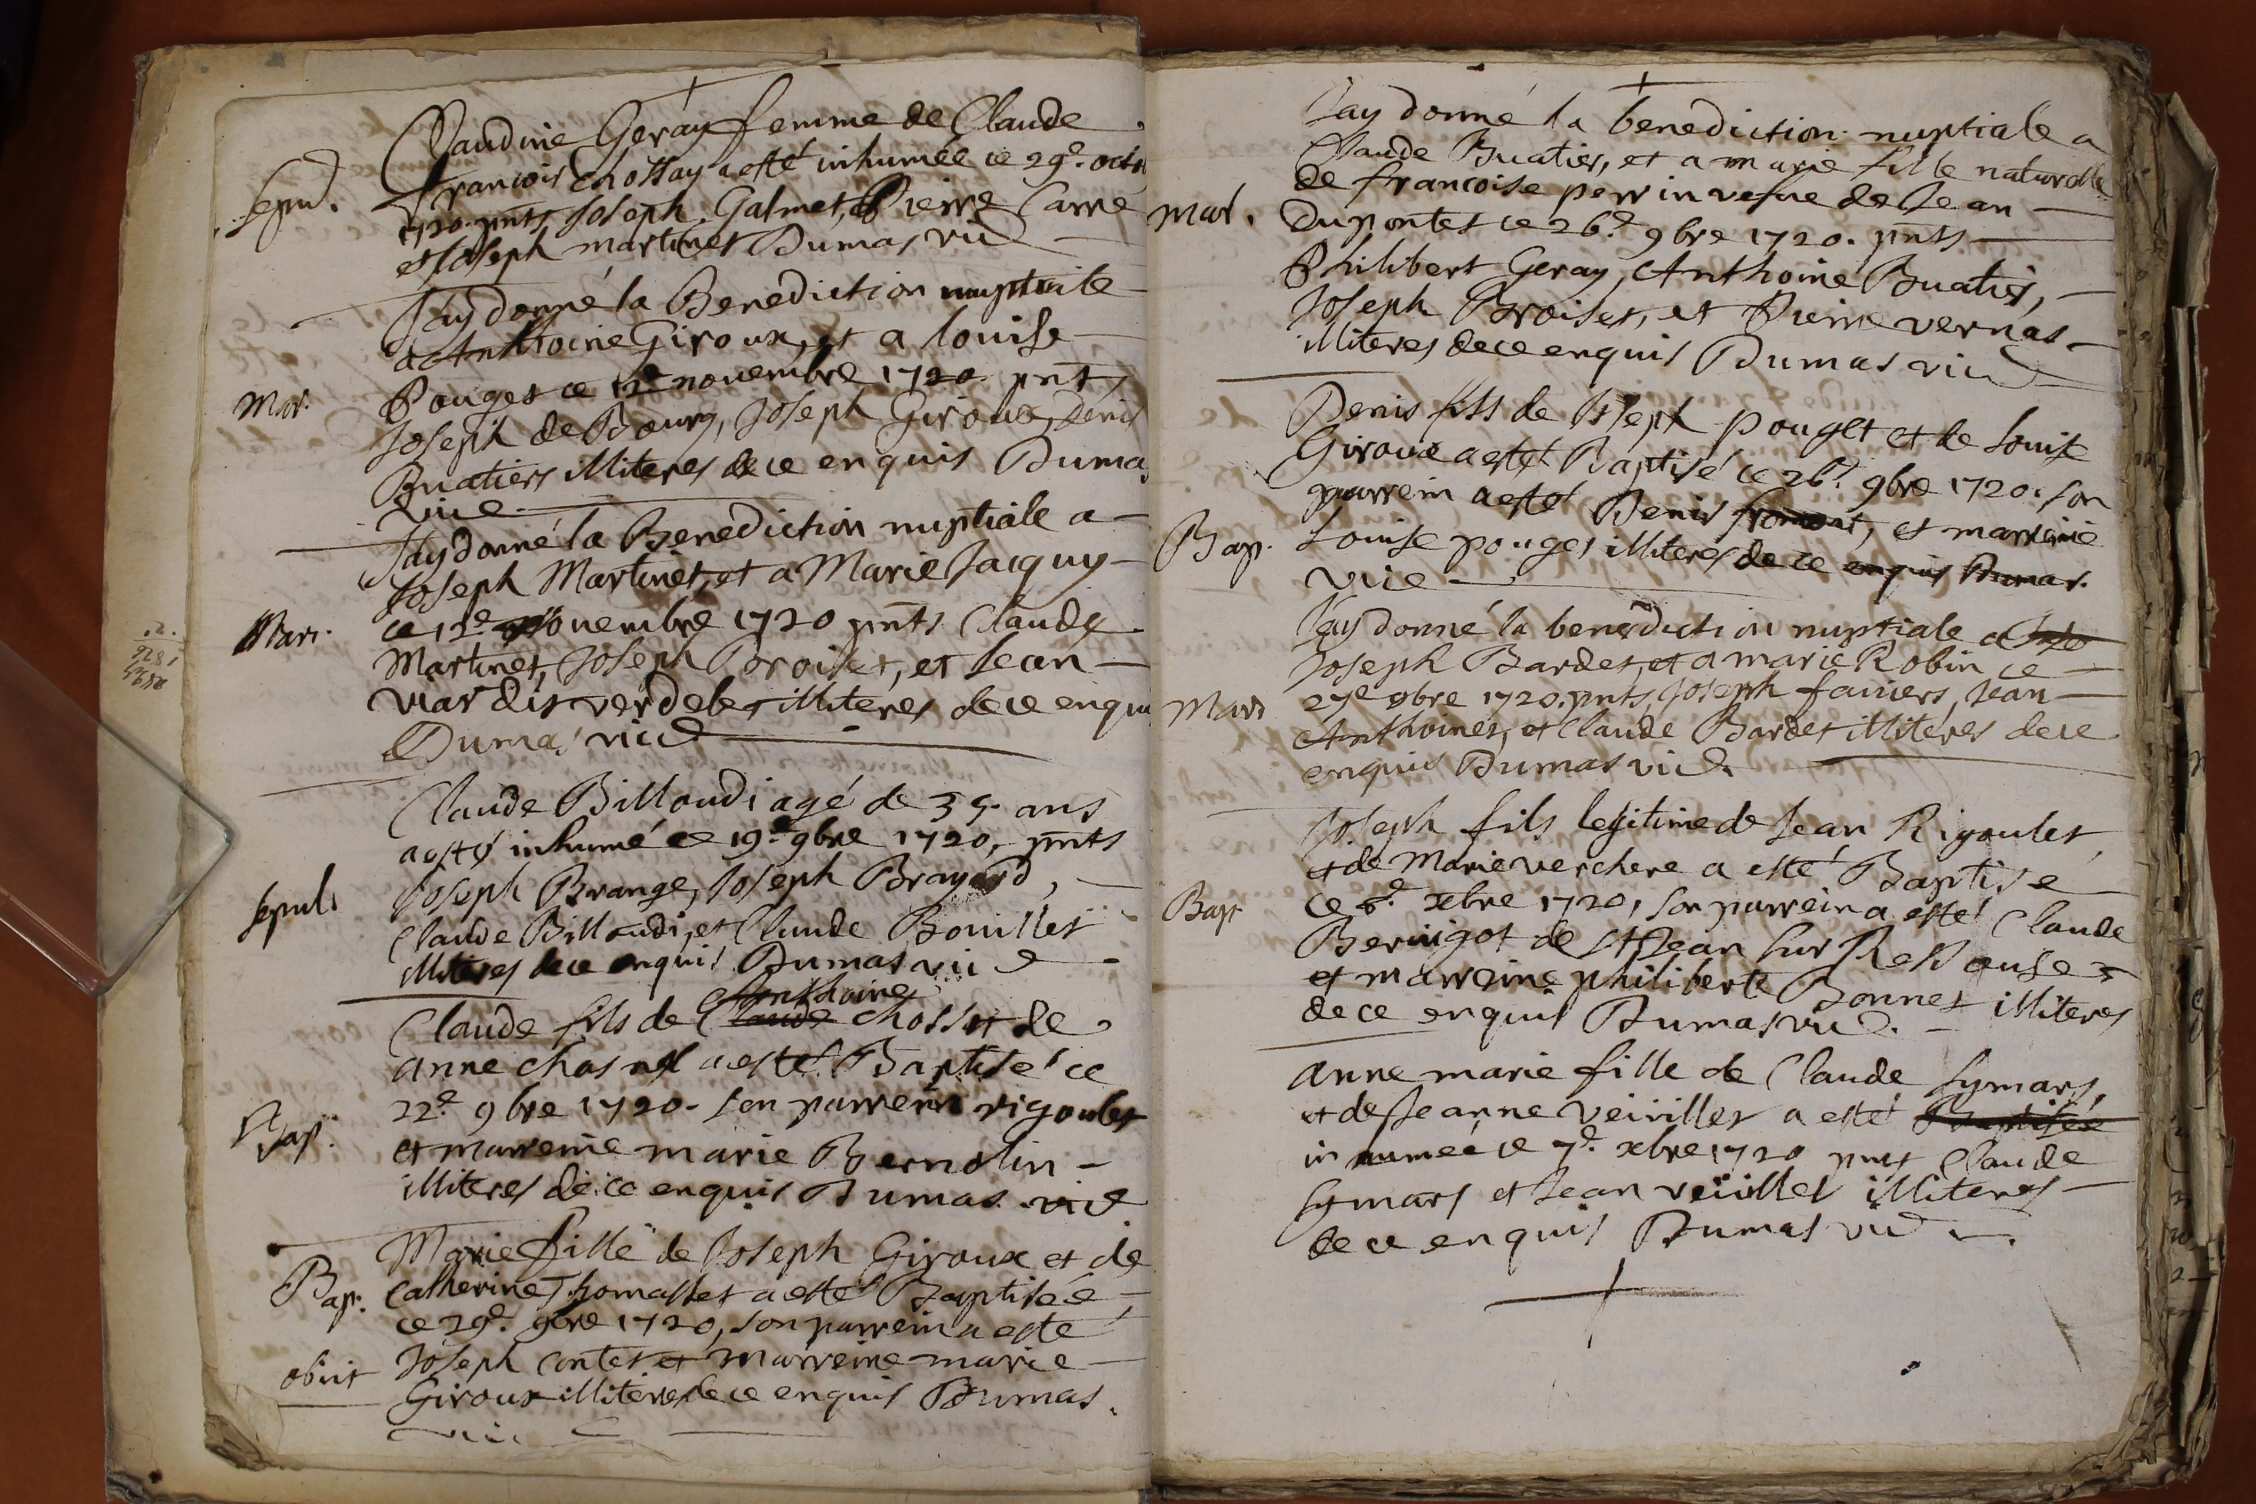 Claudine Geray femme de Claude
francois Chossay a esté inhumée ce 29e. octo
Sepul.
1720. pnts Joseph Galmet, Pierre Carre
et Joseph martinet Dumas vic
Jay donné la Benediction nuptiale
a Anthoine Giroux, et a louise
Mar.
Pouget ce 12e novembre 1720 pnts
Joseph de Bourg, Joseph Giroux, Denis
Buatiers illiteres de ce enquis Dumas
vic
Jay donné la Benediction nuptiale a
Joseph Martinet, et a Marie Jacquy
Mari.
ce 12e novembre 1720 pnts Claude
Martinet, Joseph Broiset, et Jean
viardis verdelet illiteres de ce enquis
Dumas vic
Claude Billoudi agé de 35. ans
a esté inhumé ce 19e 9bre 1720, pnts
Sepul.
Joseph Brange, Joseph Brayard,
Claude Billoudi, et Claude Bouillet
illiteres de ce enquis Dumas vic
Anthoine
Claude fils de Claude chosset de
anne chasnel a esté Baptisé ce
Bap.
22e. 9bre 1720. son parrein rigoulet
et marreine marie Bernolin
illiteres de ce enquis Dumas. vic
Marie fille de Joseph Giroux et de
Bap.
Catherine Thomasset a esté Baptisée
ce 29e. 9bre 1720, son parrein a esté
obiit
Joseph Contet et marreine marie
Giroux illiteres de ce enquis Dumas.
vic
Jay donné la benediction nuptiale a
Claude Buatier, et a marie fille naturelle
de francoise perrin vefve de Jean
Mar.
Dupontet ce 26e. 9bre 1720. pnts
Philibert Geray, Anthoine Buatier,
Joseph Broiset, et Pierre vernas
illiteres de ce enquis Dumas vic
Denis fils de Joseph Pouget et de Louise
Giroux a esté Baptisé ce 26e. 9bre 1720. son
parrein a esté Denis fromont, et marreine
Bap.
Louise pouget illiteres de ce enquis Dumas.
vic
Jay donné la benediction nuptiale a
Joseph Bardet, et a marie Robin ce
Mari
27e 9bre 1720. pnts Joseph favier, Jean
Anthoine, et Claude Bardet illiteres de ce
enquis Dumas vic.
Joseph fils legitime de Jean Rigoulet
et de Marie verchere a esté Baptisé
Bapt
ce 6e. xbre 1720, son parrein a esté Claude
Beringot de St Jean sur Ressouse
et marreine philiberte Bonnet illiteres
de ce enquis Dumas vic.
anne marie fille de Claude Symars,
et de Jeanne veivillet a esté Baptisée
inhumée ce 7e. xbre 1720 pnts Claude
Symars et Jean veivillet illiteres
de ce enquis Dumas vic